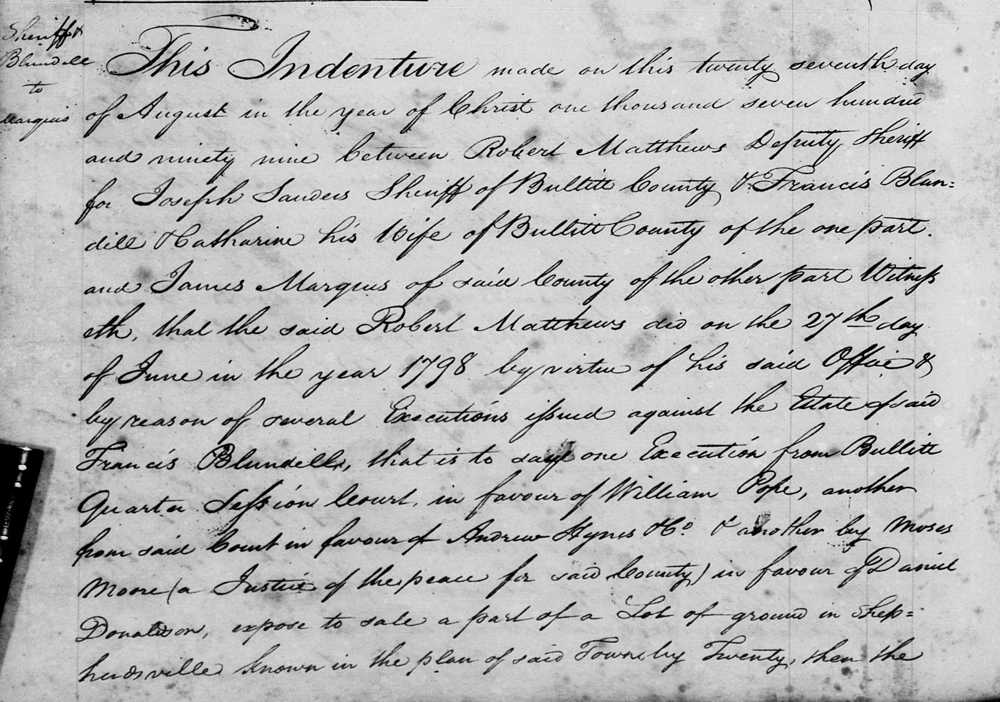 Sheriff &
Blundell
to
Marquis
This Indenture made on this twenty seventh day
of August in the year of Christ one thousand seven hundre
and ninety nine between Robert Matthews Deputy Sheriff
for Joseph Sanders Sheriff of Bullitt County & Francis Blun=
dill Katharine his Wife of Bullitt County of the one part.
and James Marquis of said County of the other part Witness
eth, that the said Robert Matthews did on the 27th day
of June in the year 1798 by virtue of his said Office &
by reason of several Executions issued against the Estate of said
Francis Blundell, that is to say one Execution from Bullitt
Quarter Session Court, in favour of William Pope, another
from said Court in favour of Andrew Hynes & another by Moses
Moore (a Justice of the peace for said County) in favour of Daniel
Donaldson, expose to sale a part of a Lot of ground in Shep=
herdsville known in the plan of said Town by Twenty, then the